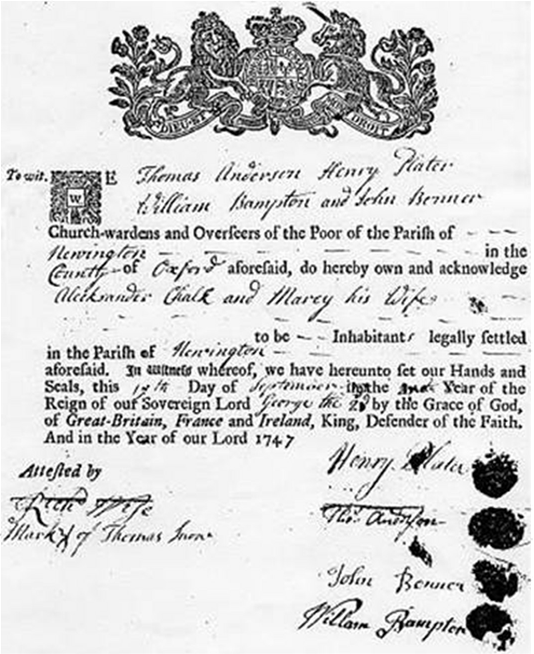 DIEU ET DROIT
To wit. WE Thomas Anderson Henry Plater
William Bampton and John Benner
Church-wardens and Overseers of the Poor of the Parish of
Newington in the
County of Oxford aforesaid, do hereby own and acknowledge
Alecksander Chalk and Marey his Wife
to be Inhabitants legally settled
in the Parish of Newington
aforesaid. In witness whereof, we have hereunto set our Hands and
Seals, this Day of September in the Year of the
Reign of our Sovereign Lord George the 2d by the Grace of God,
of Great-Britain, France and Ireland, King, Defender of the Faith.
And in the Year of our Lord 1747
Attested by
Henry Plater
Tho: Anderson
Mark X of Thomas
John Benner
William Bampton